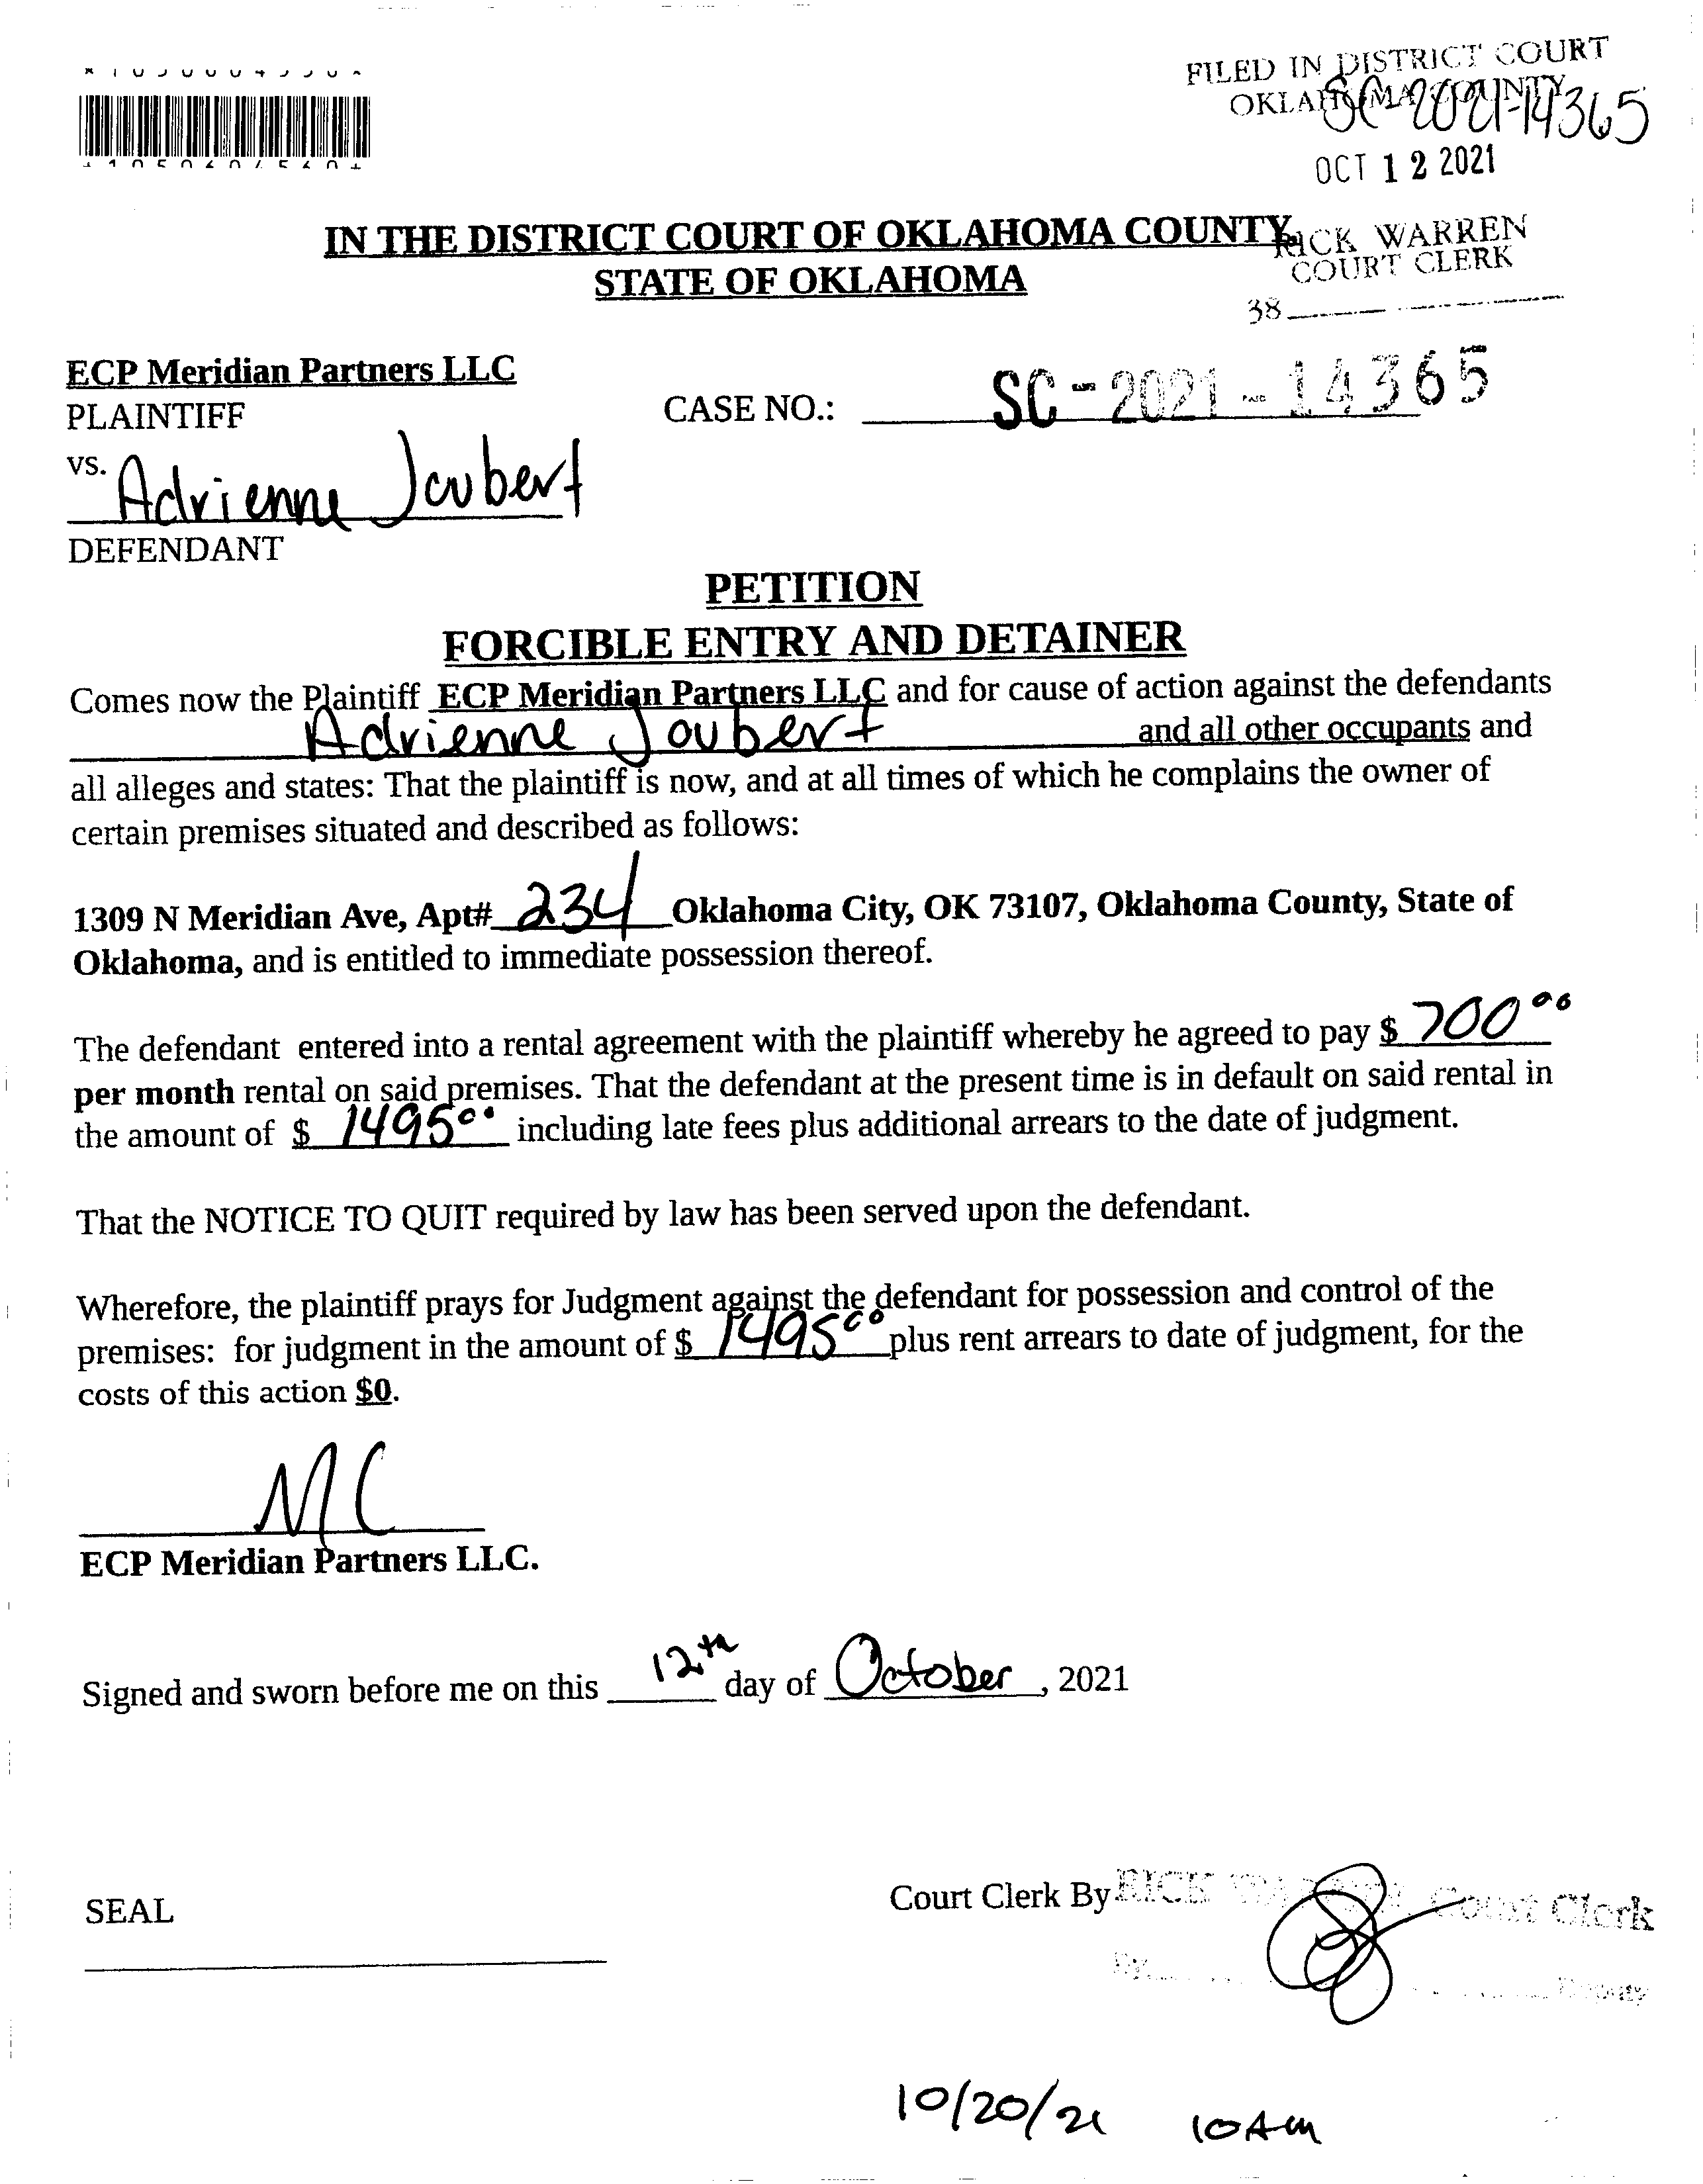 FILED IN DISTRICT COURT
OKLAHOMA COUNTY
SC-2021-14365
OCT 12 2021
IN THE DISTRICT COURT OF OKLAHOMA COUNTY
STATE OF OKLAHOMA
RICK WARREN
COURT CLERK
38
ECP Meridian Partners LLC
PLAINTIFF
CASE NO.: SC-2021-14365
vs. Adrienne Joubert
DEFENDANT
PETITION
FORCIBLE ENTRY AND DETAINER
Comes now the Plaintiff ECP Meridian Partners LLC and for cause of action against the defendants
Adrienne Joubert and all other occupants and
all alleges and states: That the plaintiff is now, and at all times of which he complains the owner of
certain premises situated and described as follows:
1309 N Meridian Ave, Apt# 234 Oklahoma City, OK 73107, Oklahoma County, State of
Oklahoma, and is entitled to immediate possession thereof.
The defendant entered into a rental agreement with the plaintiff whereby he agreed to pay $ 700 00
per month rental on said premises. That the defendant at the present time is in default on said rental in
the amount of $ 1495 00 including late fees plus additional arrears to the date of judgment.
That the NOTICE TO QUIT required by law has been served upon the defendant.
Wherefore, the plaintiff prays for Judgment against the defendant for possession and control of the
premises: for judgment in the amount of $ 1495 00 plus rent arrears to date of judgment, for the
costs of this action $0.
MC
ECP Meridian Partners LLC.
Signed and sworn before me on this 12th day of October, 2021
SEAL
Court Clerk By RICK WARREN, Court Clerk
By Deputy
10/20/21 10AM